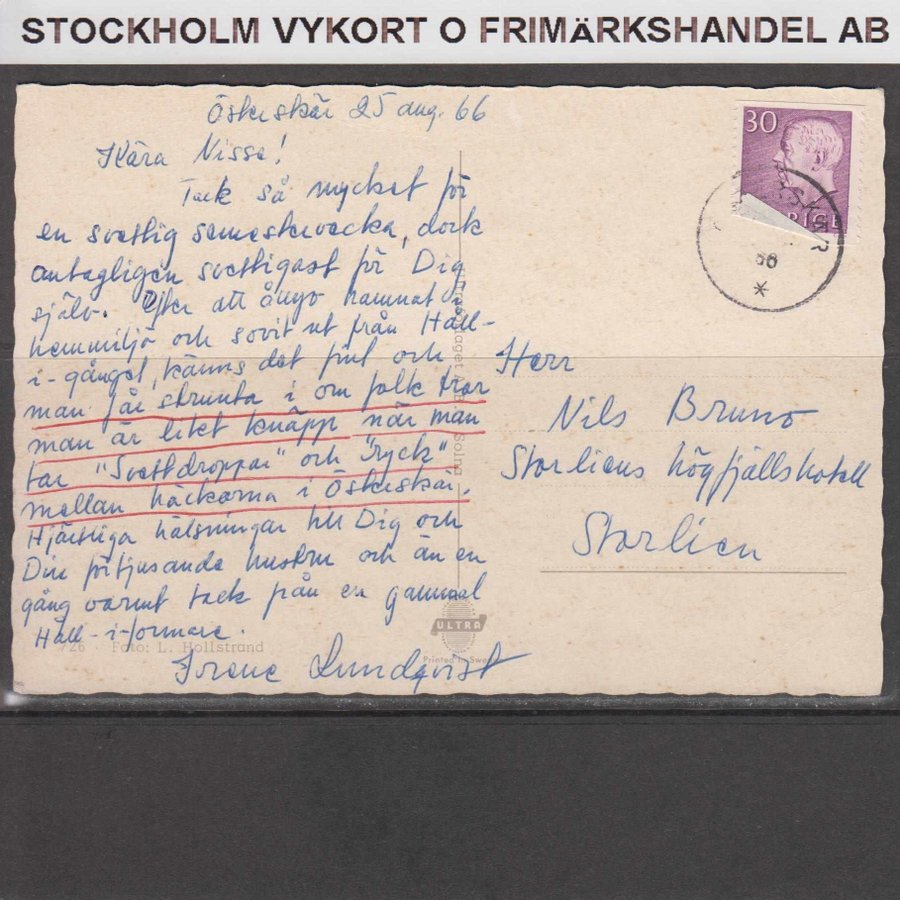 STOCKHOLM VYKORT O FRIMÄRKSHANDEL AB
Öskeskär 25 aug. 66
Kära Nisse!
Tack så mycket för
en svettig semestervecka, dock
antagligen svettigast för Dig
själv. Efter att ånyo hamnat i
hemmiljö och sovit ut från Håll-
i-gånget, känns det fint och
man får strunta i om folk tror
man är litet knäpp när man
tar "Svettdroppar" och "ryck"
mellan häckarna i Öskeskär.
Hjärtliga hälsningar till Dig och
Din förtjusande hustru och än en
gång varmt tack från en gammal
Håll-i-formare.
Irene Lundqvist
726 Foto: L. Hollstrand
ULTRA
Printed in Swe
Solna
30
SVERIGE
66
Herr
Nils Bruno
Storliens högfjällshotell
Storlien